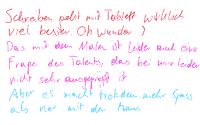 Schreiben geht mit Tablett wirklich
viel besser. Oh Wunder!
Das mit dem Malen ist leider auch eine
Frage des Talents, das bei mir leider
nicht sehr ausgeprägt ist
Aber es macht trotzdem mehr Spass
als nur mit der Maus